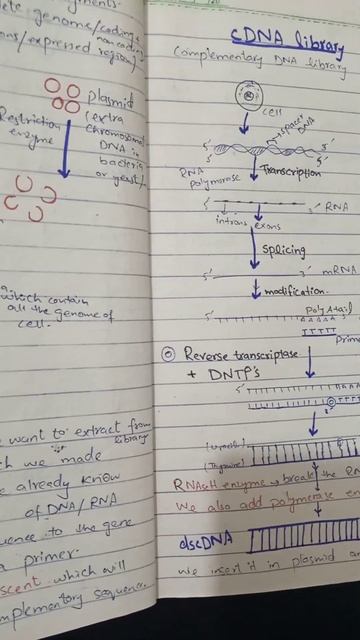 lete genome/coding &
noncoding
ons/expressed region)
plasmid
(extra
chromosomal
DNA in
bacteria
or yeast)
Restriction
enzyme
which contain
all the genome of
cell.
want to extract from
library
ch we made
e already know
of DNA/RNA
uence to the gene
a primer.
scent which will
mplementary sequence.
cDNA library
Complementary DNA library
cell
spacer
DNA
5' 3'
3' 5'
RNA
polymerase
Transcription
5' 3' RNA
introns exons
Splicing
5' 3' mRNA
modification.
Poly A tail
5' AAAAA
TTTTT
Prime
Reverse transcriptase
+ DNTP's
5'
(Uracil)
(Thymine)
RNAseH enzyme → break the RN
We also add polymerase en
dscDNA
we insert it in plasmid an